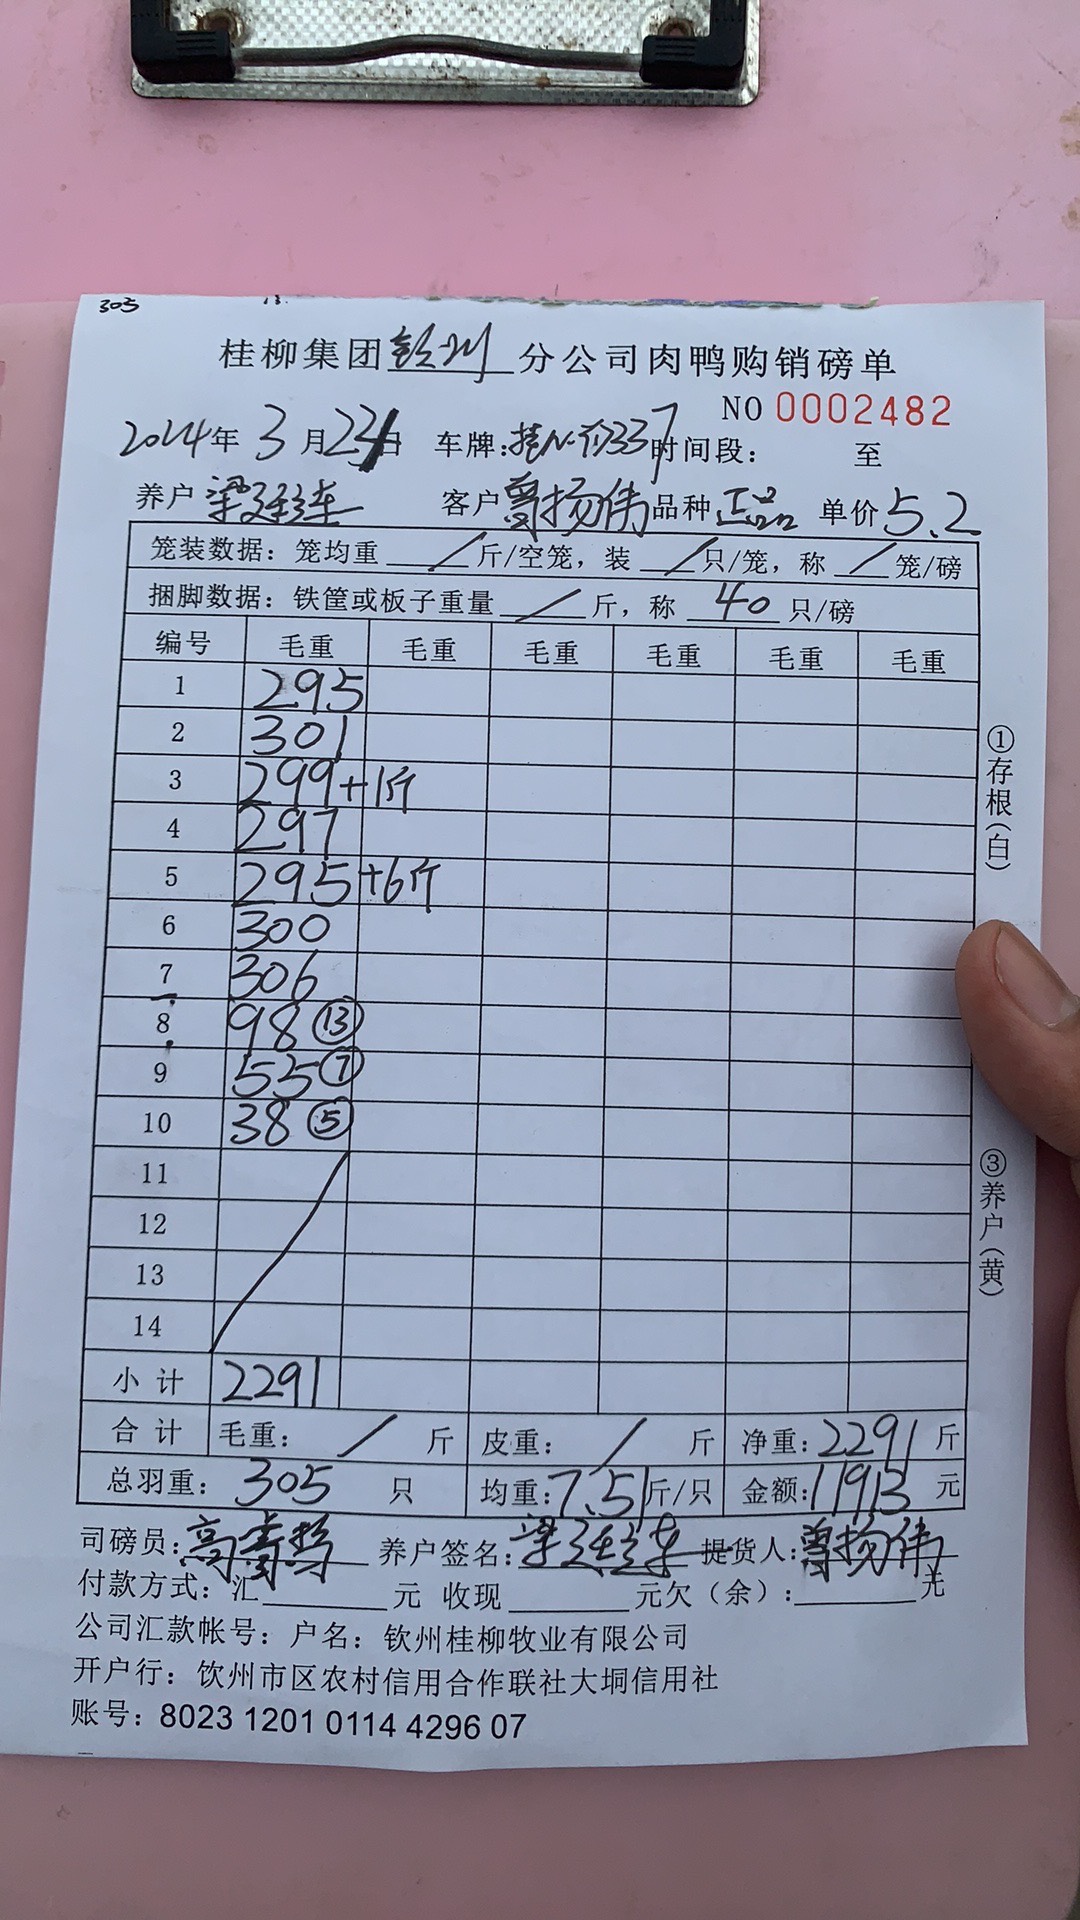 303
桂柳集团钦州分公司肉鸭购销磅单
NO 0002482
2024年3月23日 车牌: 时间段: 至
养户 梁 客户 曾扬伟 品种 正品 单价 5.2
笼装数据: 笼均重 / 斤/空笼, 装 / 只/笼, 称 / 笼/磅
捆脚数据: 铁筐或板子重量 / 斤, 称 40 只/磅
编号 毛重 毛重 毛重 毛重 毛重 毛重
1 295
2 301
3 299+1斤
4 297
5 295+6斤
6 300
7 306
8 98 ⑬
9 55 ⑦
10 38 ⑤
11
12
13
14
小计 2291
合计 毛重: / 斤 皮重: / 斤 净重: 2291 斤
总羽重: 305 只 均重: 7.51 斤/只 金额: 11913 元
司磅员: 高 养户签名: 梁 提货人: 曾扬伟
付款方式: 汇 元 收现 元欠(余): 元
公司汇款帐号: 户名: 钦州桂柳牧业有限公司
开户行: 钦州市区农村信用合作联社大垌信用社
账号: 8023 1201 0114 4296 07
①存根(白)
③养户(黄)